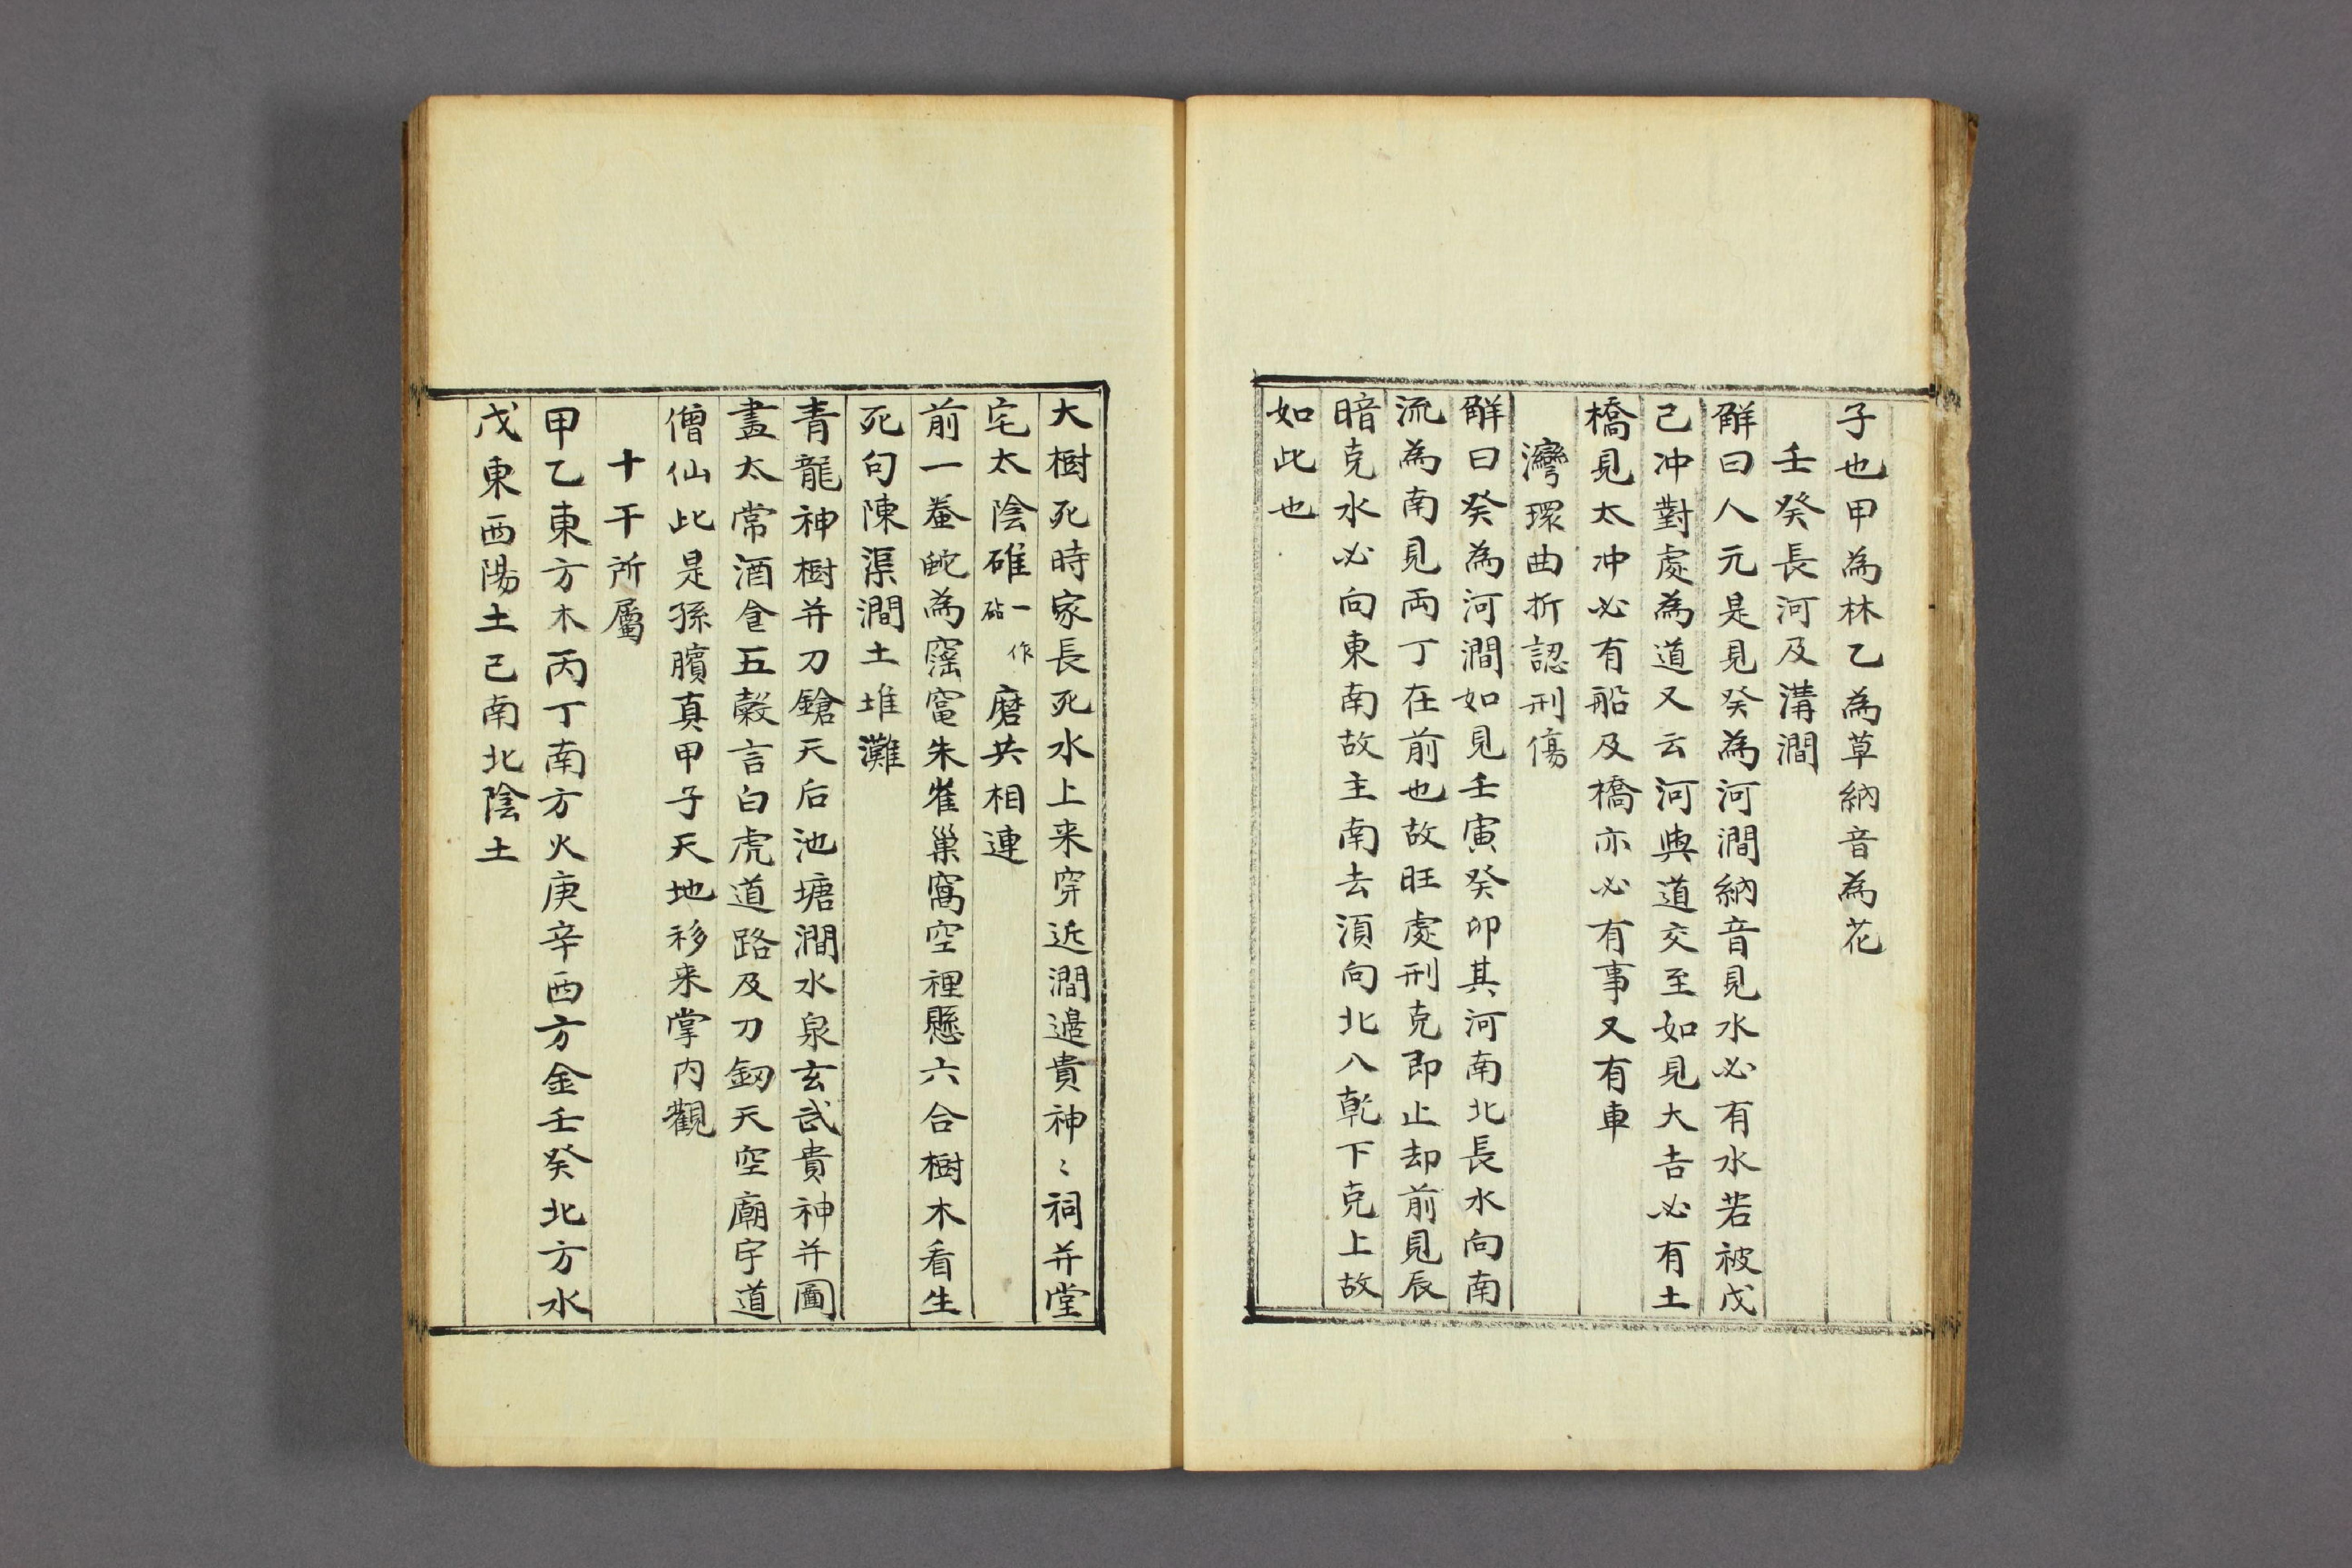 子也甲為林乙為草納音為花
壬癸長河及溝澗
解曰人元是見癸為河澗納音見水必有水若被戊
己冲對處為道又云河與道交至如見大吉必有土
橋見太冲必有船及橋亦必有事又有車
灣環曲折認刑傷
解曰癸為河澗如見壬寅癸卯其河南北長水向南
流為南見丙丁在前也故旺處刑克即止却前見辰
暗克水必向東南故主南去湏向北八乾下克上故
如此也
大樹死時家長死水上来穿近澗邉貴神〻祠并堂
宅太陰碓一作砧磨共相連
前一螣蛇為窰窀朱雀巢窩空裡懸六合樹木看生
死句陳渠澗土堆灘
青龍神樹并刀鎗天后池塘澗水泉玄武貴神并圖
畫太常酒食五穀言白虎道路及刀釼天空廟宇道
僧仙此是孫臏真甲子天地移来掌内觀
十干所屬
甲乙東方木丙丁南方火庚辛西方金壬癸北方水
戊東西陽土己南北陰土